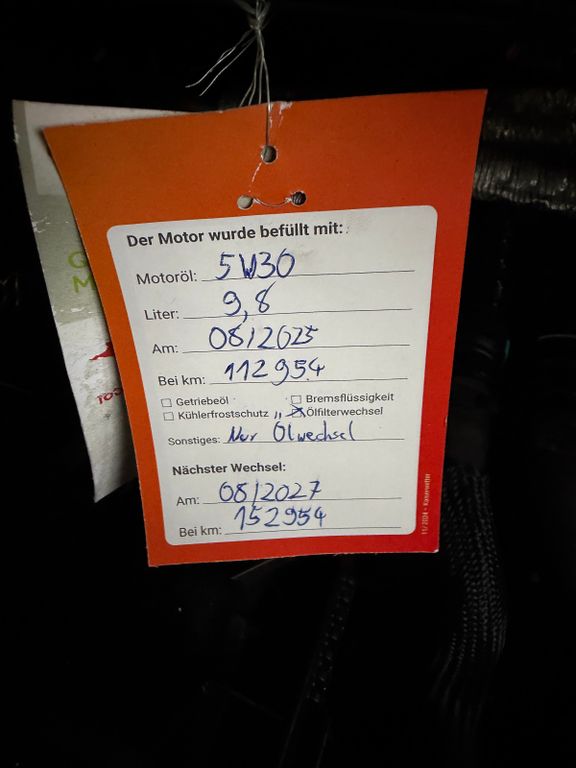 Der Motor wurde befüllt mit:
Motoröl: 5W30
Liter: 9,8
Am: 08/2025
Bei km: 112954
Getriebeöl Bremsflüssigkeit
Kühlerfrostschutz „ Ölfilterwechsel
Sonstiges: Nur Ölwechsel
Nächster Wechsel:
Am: 08/2027
Bei km: 152954